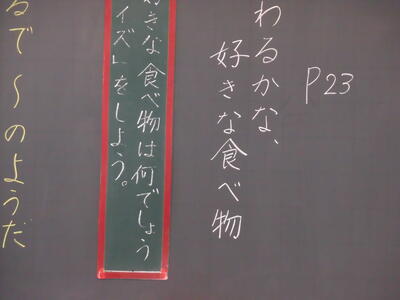 P23
わるかな、
好きな食べ物
好きな食べ物は何でしょう
イズ」をしよう。
るで〜のようだ